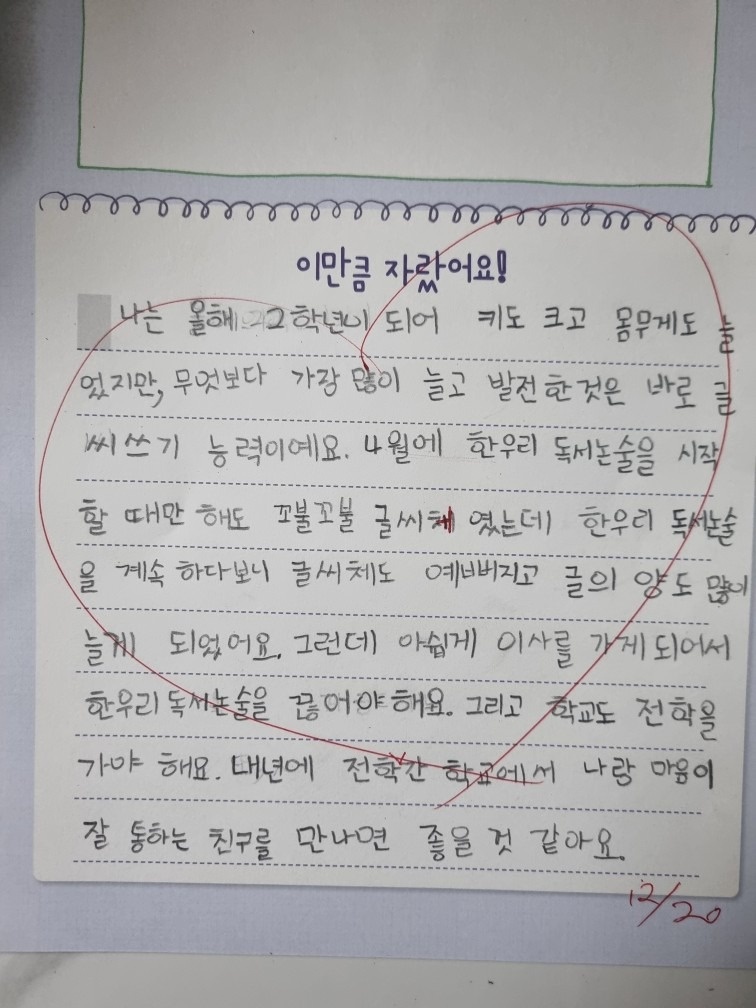 이만큼 자랐어요!
나는 올해 2학년이 되어 키도 크고 몸무게도 늘
었지만, 무엇보다 가장 많이 늘고 발전한것은 바로 글
씨쓰기 능력이예요. 4월에 한우리 독서논술을 시작
할 때만 해도 꼬불꼬불 글씨체 였는데 한우리 독서논술
을 계속 하다보니 글씨체도 예뻐지고 글의 양도 많이
늘게 되었어요. 그런데 아쉽게 이사를 가게되어서
한우리독서논술을 끊어야해요. 그리고 학교도 전학을
가야 해요. 내년에 전학간 학교에서 나랑 마음이
잘 통하는 친구를 만나면 좋을 것 같아요.
12/20